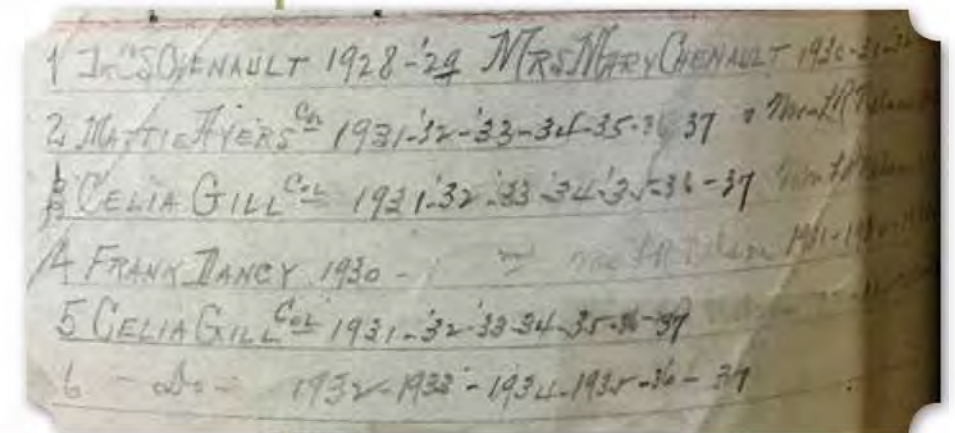 1 Dr CS CHENAULT 1928-'29 MRS MARY CHENAULT 1930-31-32
2 MATTIE AYERS Col 1931-'32-'33-34-35-36 37
3 CELIA GILL COL 1931-'32-'33-'34-'35-36-37
4 FRANK DANCY 1930-
5 CELIA GILL COL 1931-'32-'33-34-35-36-37
6 - Do - 1932-1933-1934-1935-36-37